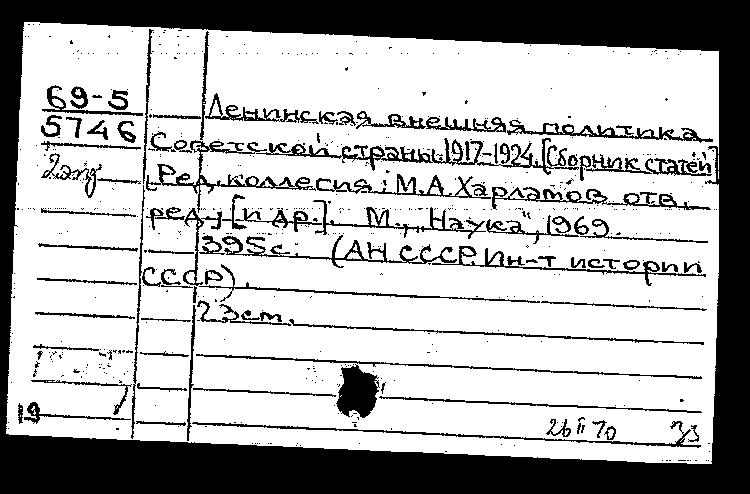 69-5
5746
2 экз
Ленинская внешняя политика
Советской страны. 1917-1924. [Сборник статей]
Ред. коллегия: М.А. Харламов отв.
ред., [и др.]. М., „Наука", 1969.
395 с. (АН СССР. Ин-т истории
СССР).
23 см.
19
26 II 70